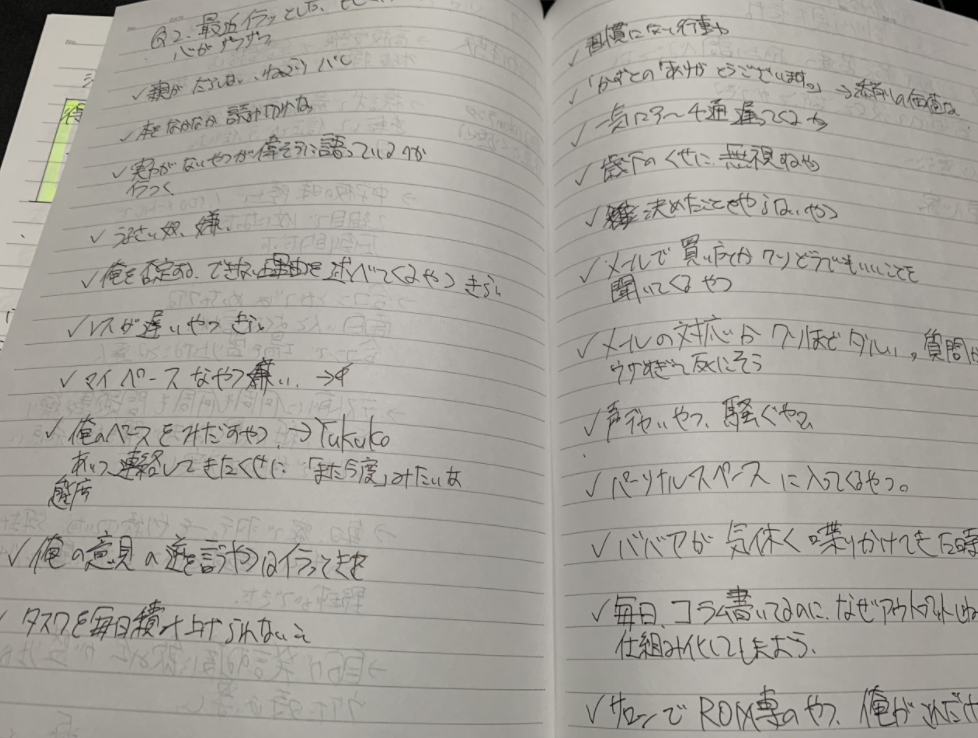 Q2. 最近イラッとした、
心がザワザワ
✓ 親が だらしない
✓ 本をなかなか 読み切れない
✓ 実力がないやつが偉そうに語っているのが
イラつく
✓ うるさい奴、嫌、
✓ 俺を否定する、できない理由を述べてくるやつ きらい
✓ レスが遅いやつ きらい
✓ マイペースなやつ嫌い、→
✓ 俺のペースをみだすやつ、→ Yukuko
あいつ連絡してきたくせに「また今度」みたいな
態度
✓ 俺の意見の逆を言うやつは
✓ タスクを毎日積み上げられない
✓ 習慣にない行動
✓ 「かずとの「ありがとうございます。」→
✓ 一気に3〜4通 送ってくるやつ
✓ 歳下のくせに 無視するやつ
✓ 決めたことをやらないやつ
✓ メールで 買い方とか ワリとどうでもいいことを
聞いてくるやつ
✓ メールの対応が ダルい、質問
ウザすぎて死にそう
✓ 声デカいやつ、騒ぐやつ
✓ パーソナルスペースに入ってくるやつ。
✓ ババアが 気休く喋りかけてきた時
✓ 毎日、コラム書いてるのに、なぜアウトプット
仕組み化してしまおう、
✓ サロンで ROM専のやつ、俺が